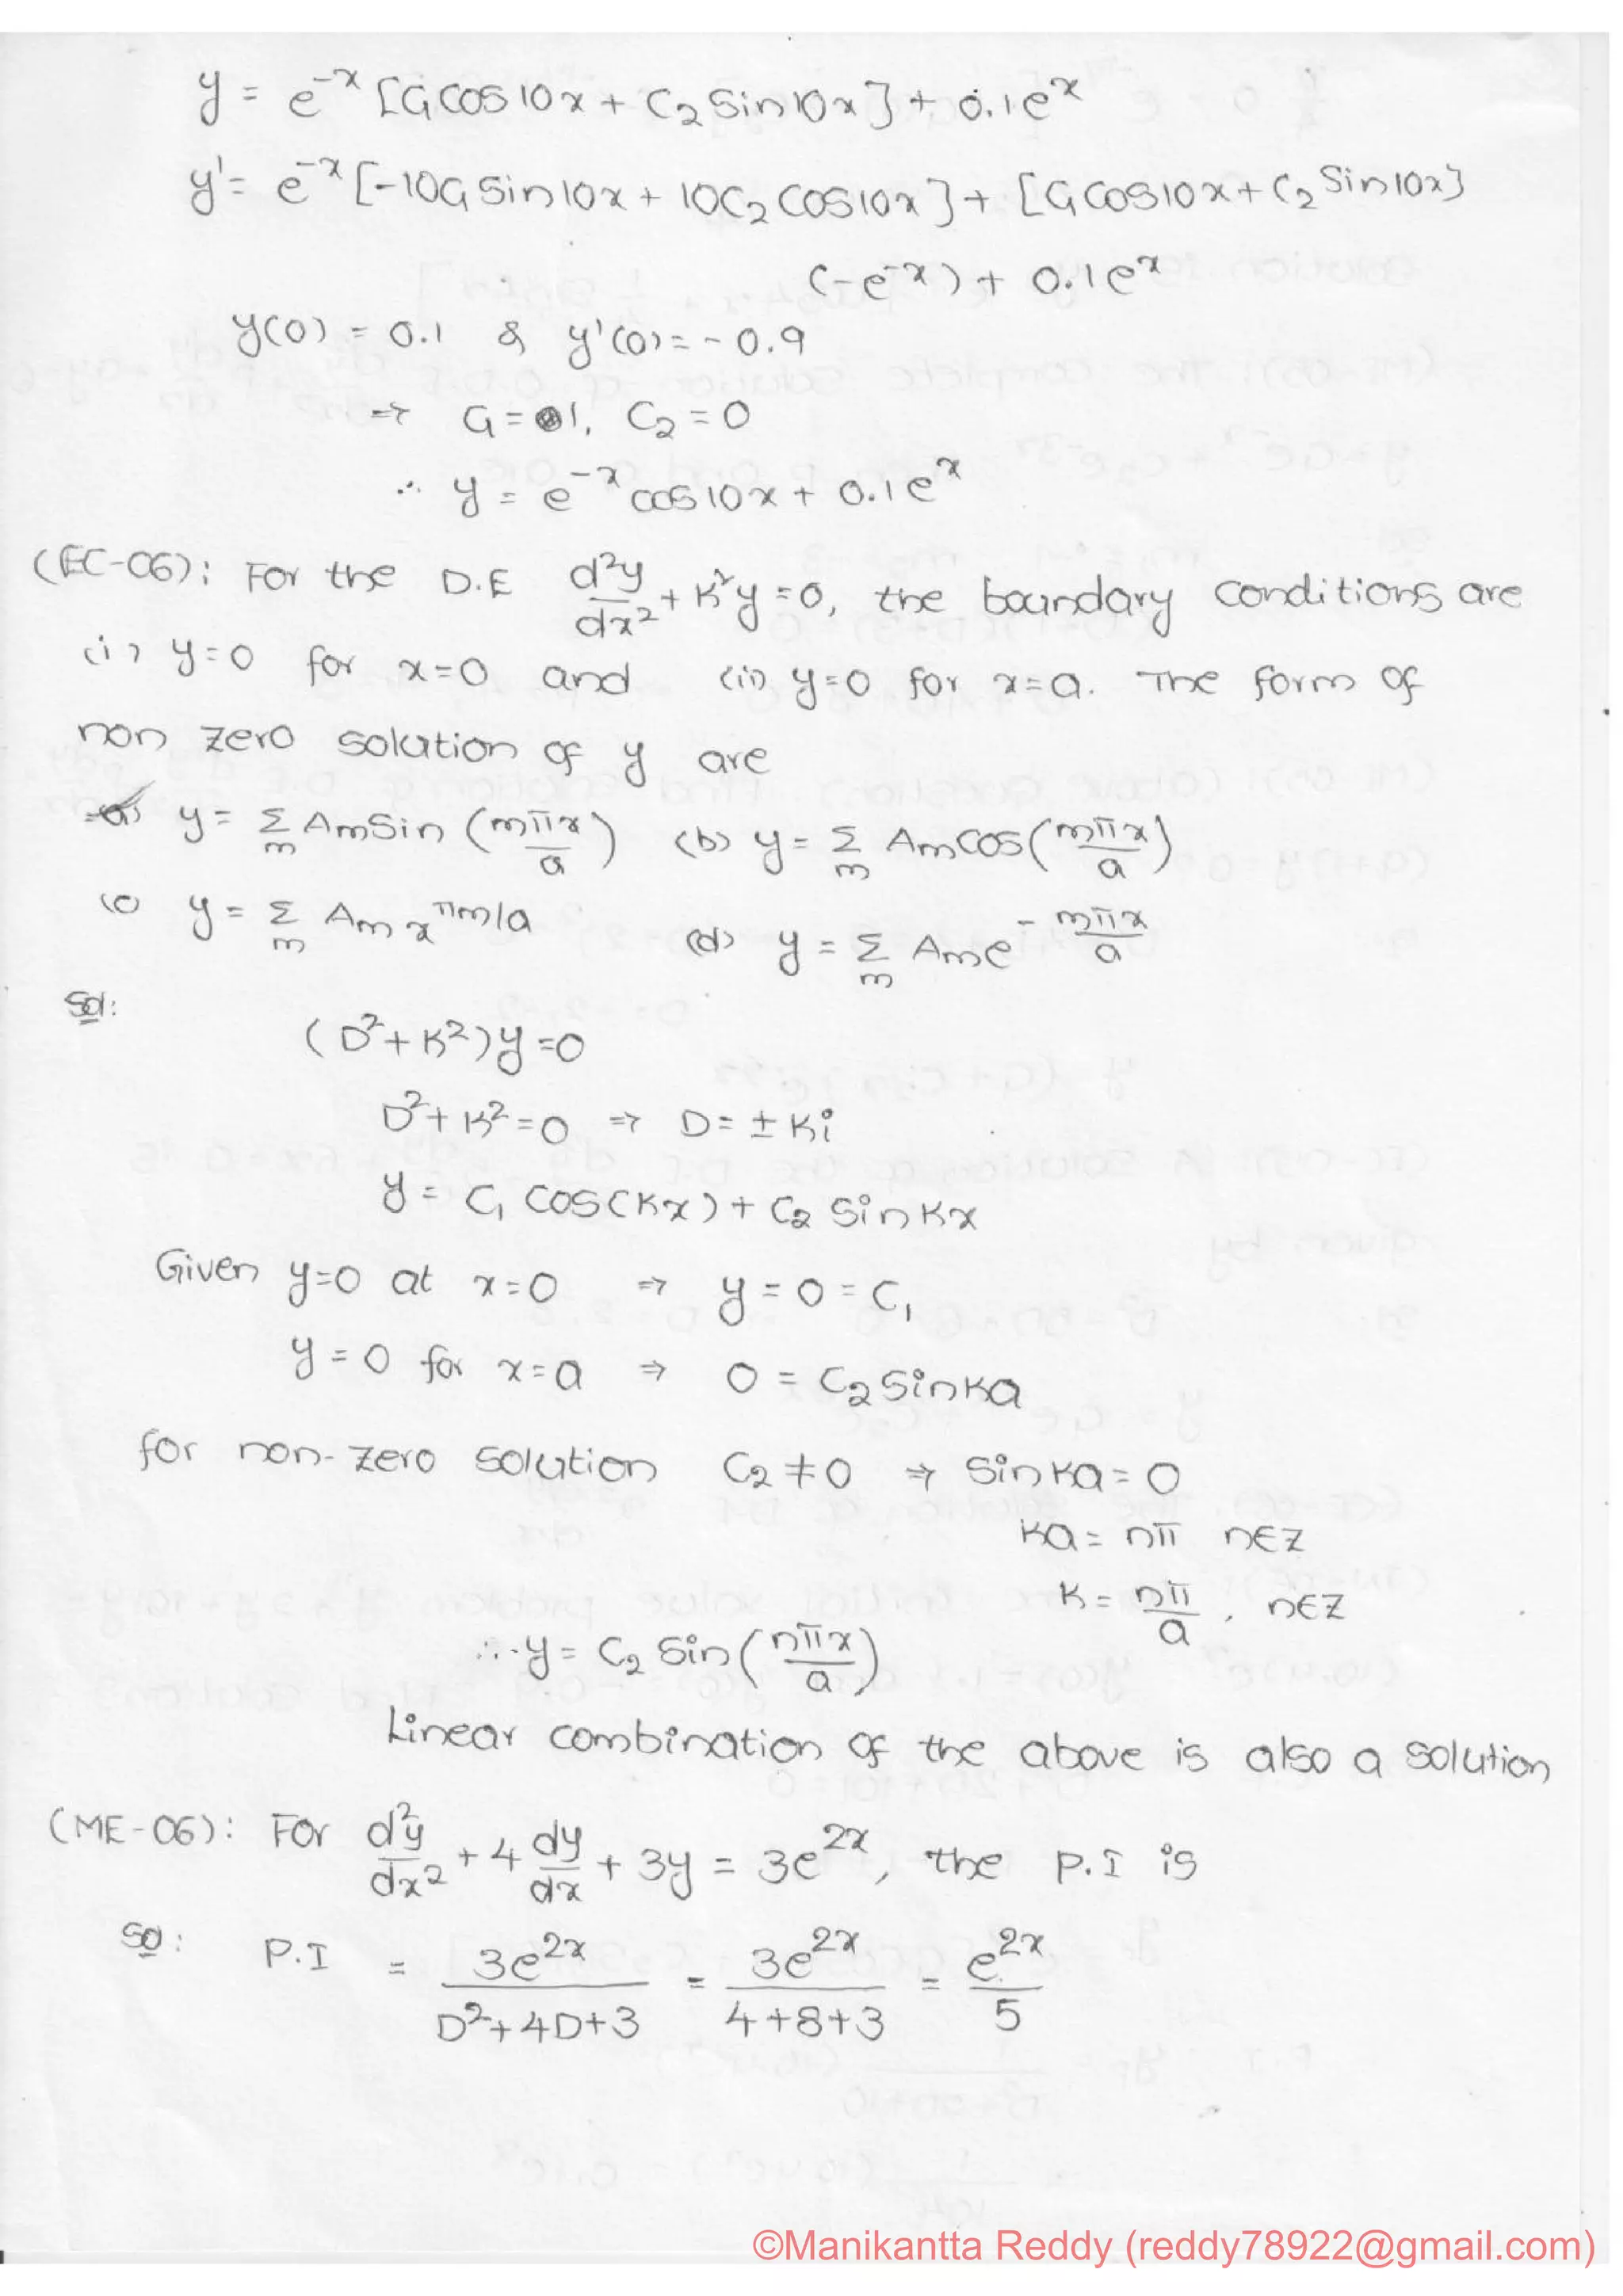 y = e^{-x} [C₁ cos 10x + C₂ Sin 10x] + 0.1e^x
y' = e^{-x} [-10C₁ Sin 10x + 10C₂ cos 10x] + [C₁ cos 10x + C₂ Sin 10x]
(-e^{-x}) + 0.1e^x
y(0) = 0.1 & y'(0) = -0.9
⇒ C₁ = 1, C₂ = 0
∴ y = e^{-x} cos 10x + 0.1e^x
(EC-06): For the D.E d²y/dx² + K²y = 0, the boundary conditions are
(i) y=0 for x=0 and (ii) y=0 for x=a. The form of
non zero solution of y are
(a) y = Σ_m Am Sin (mπx/a) (b) y = Σ_m Am cos (mπx/a)
(c) y = Σ_m Am x^{πm/a} (d) y = Σ_m Am e^{-mπx/a}
Sol:
(D² + K²)y = 0
D² + K² = 0 ⇒ D = ± Ki
y = C₁ cos(Kx) + C₂ sin Kx
Given y=0 at x=0 ⇒ y = 0 = C₁
y = 0 for x = a ⇒ 0 = C₂ sin Ka
for non-zero solution C₂ ≠ 0 ⇒ sin Ka = 0
Ka = nπ n∈Z
K = nπ/a, n∈Z
∴ y = C₂ Sin (nπx/a)
Linear combination of the above is also a solution
(ME-06): For d²y/dx² + 4 dy/dx + 3y = 3e^{2x}, the P.I is
Sol: P.I = 3e^{2x}/(D²+4D+3) = 3e^{2x}/(4+8+3) = e^{2x}/5
©Manikantta Reddy (reddy78922@gmail.com)